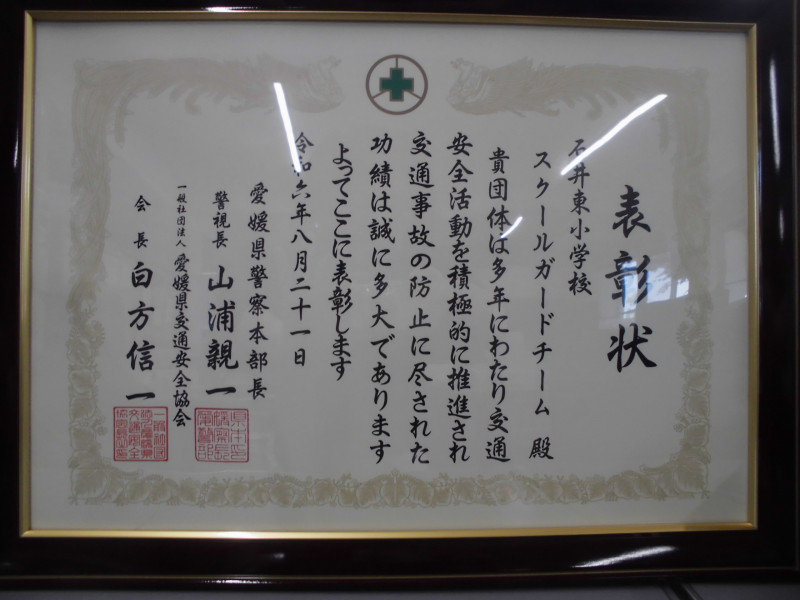 表彰状
石井東小学校
スクールガードチーム 殿
貴団体は多年にわたり交通
安全活動を積極的に推進され
交通事故の防止に尽された
功績は誠に多大であります
よってここに表彰します
令和六年八月二十一日
愛媛県警察本部長
警視長 山浦親一
一般社団法人 愛媛県交通安全協会
会長 白方信一